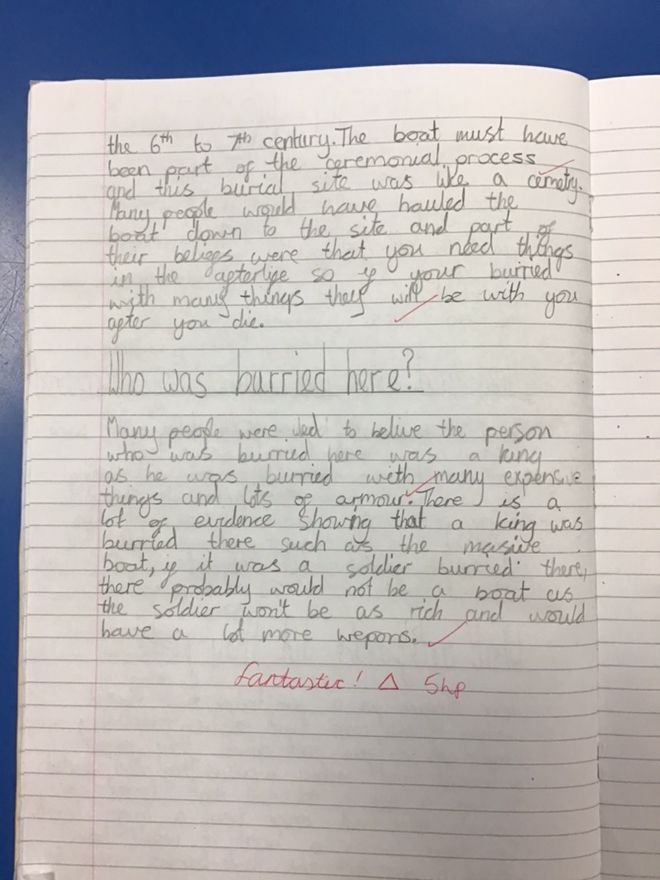 the 6th to 7th century. The boat must have
been part of the ceremonial process
and this burial site was like a cemetry.
Many people would have hauled the
boat down to the site and part of
their beliefs were that you need things
in the afterlife so if your burried
with many things they will be with you
after you die.
Who was burried here?
Many people were led to belive the person
who was burried here was a king
as he was burried with many expensive
things and lots of armour. There is a
lot of evidence showing that a king was
burried there such as the masive
boat, if it was a soldier burried there,
there probably would not be a boat as
the soldier won't be as rich and would
have a lot more wepons.
fantastic! △ 5hp